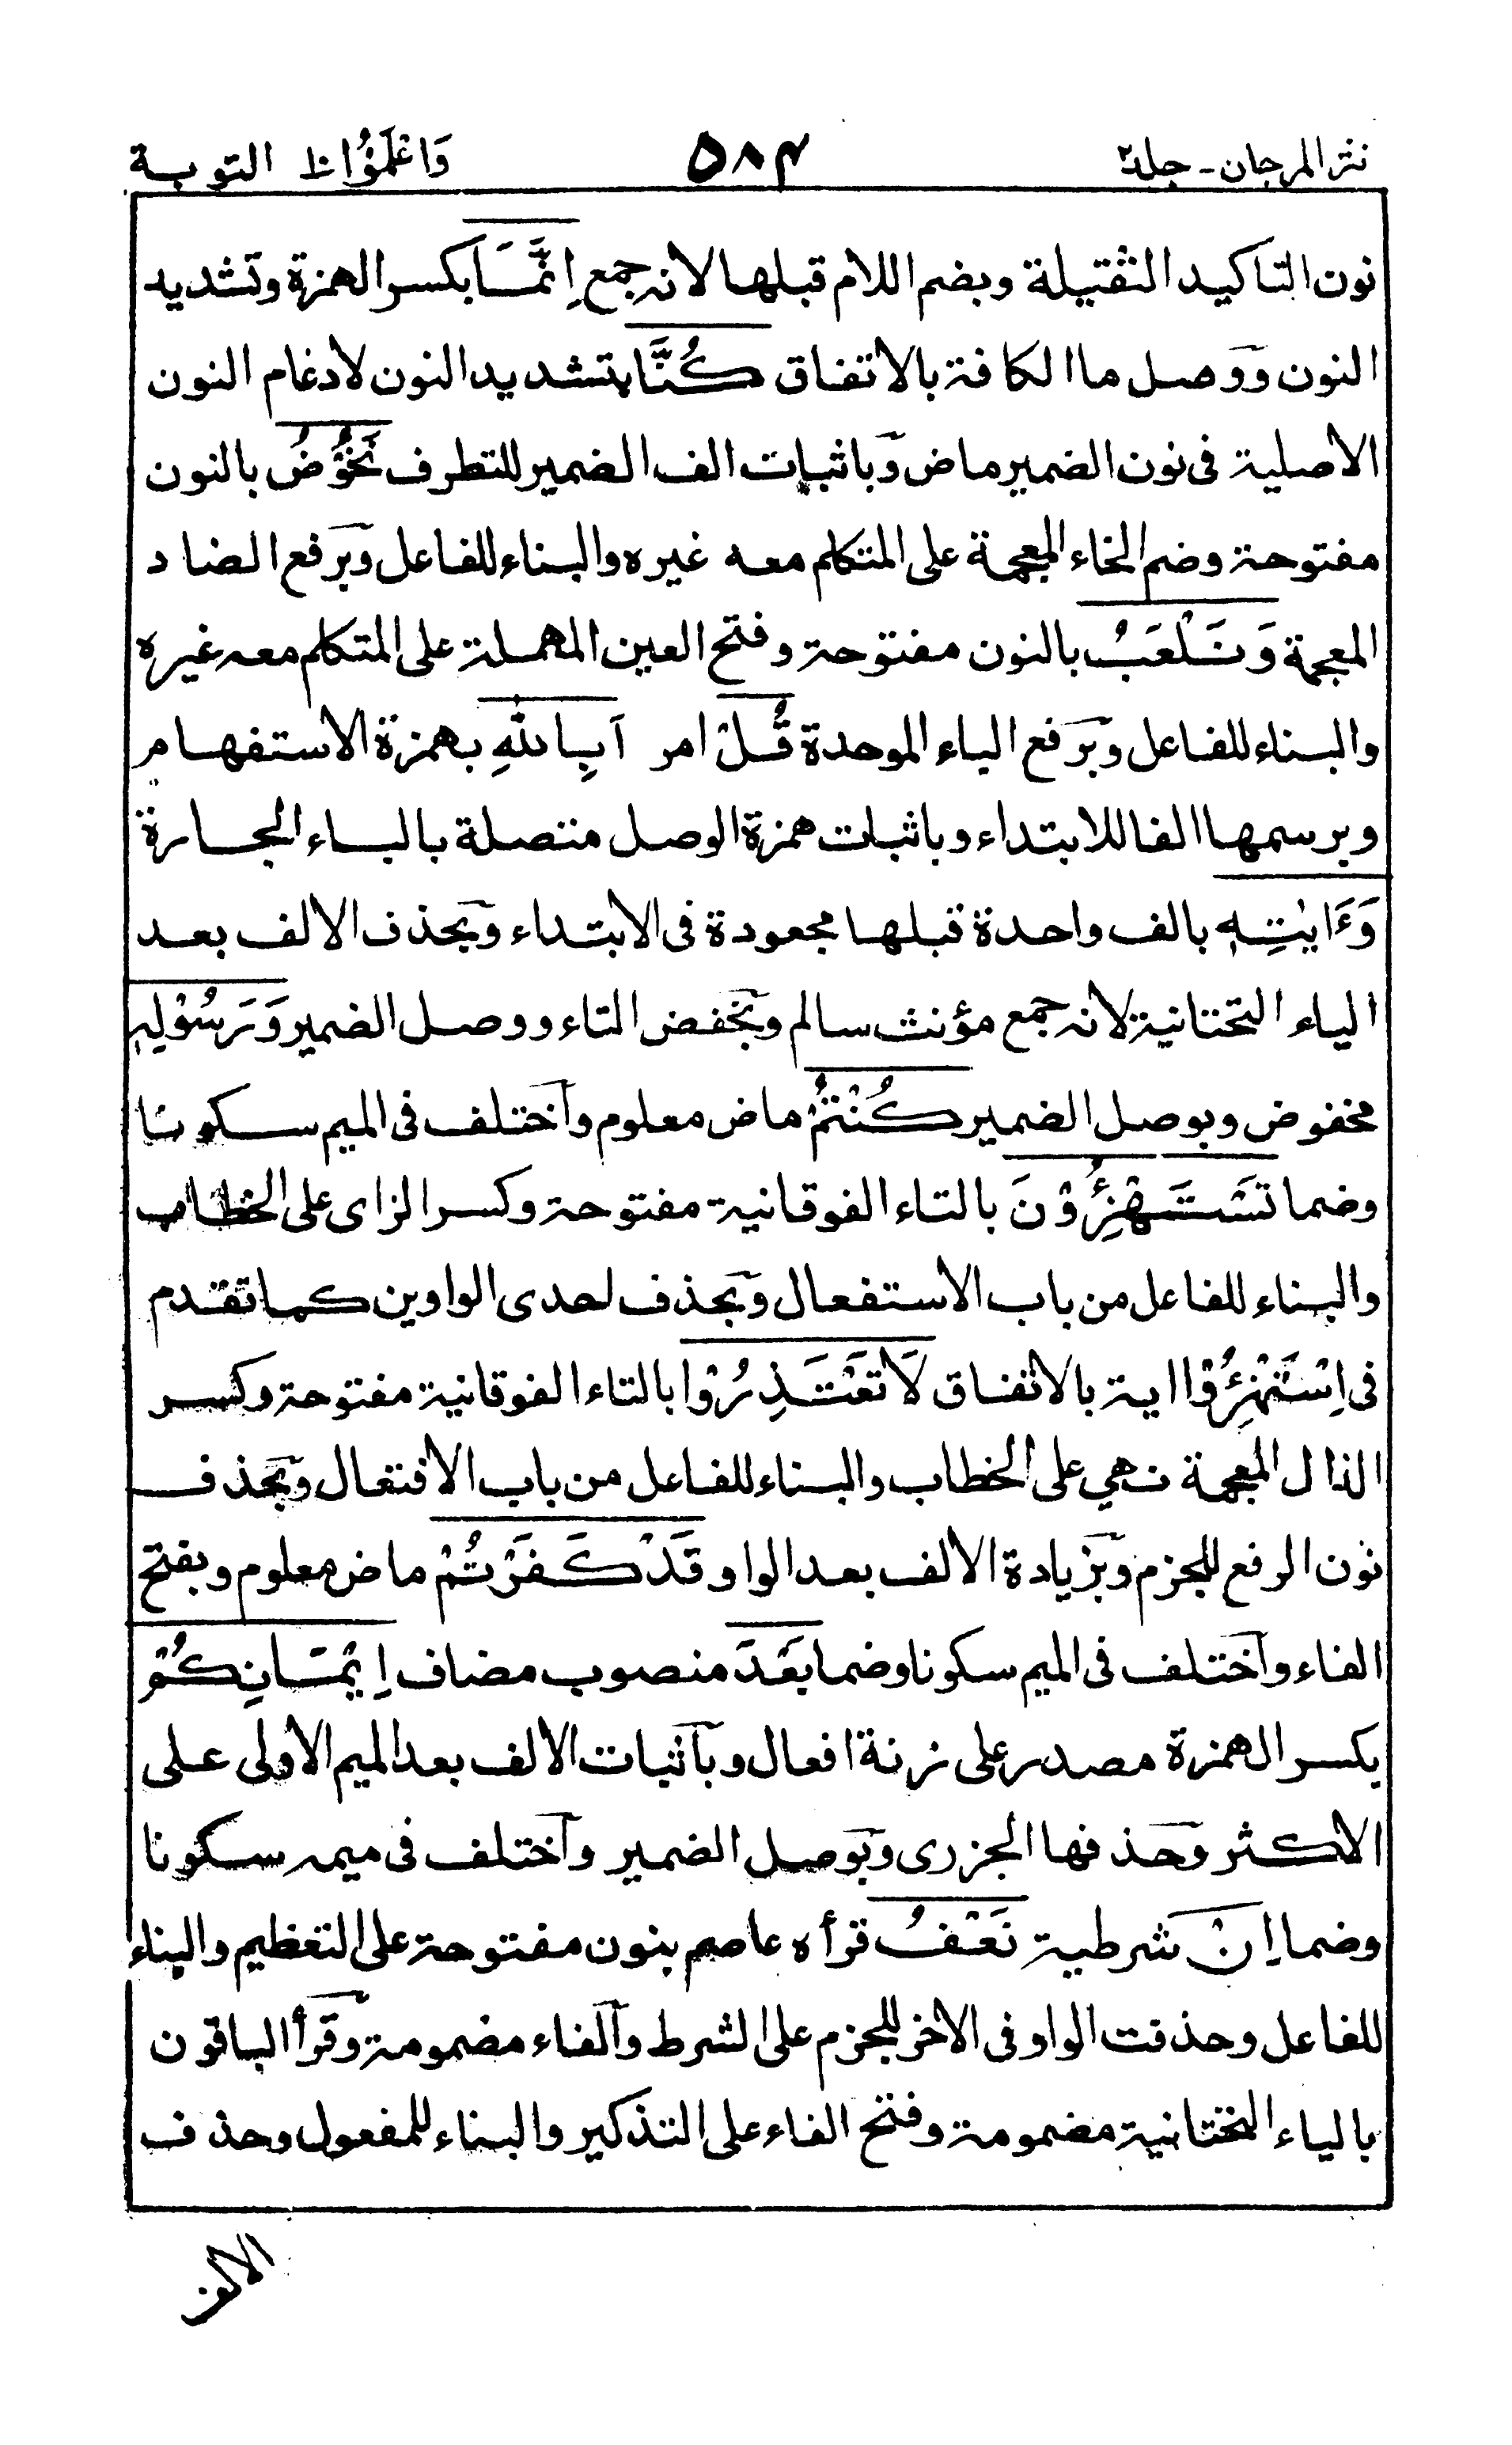 نثر المرجان - جلد٢ ٥٨٣ وَاعْلَمُوْا ١٠ التوبة
نون التاكيد الثقيلة وبضم اللام قبلها لانه جمع اِنَّمَا بكسر الهمزة وتشديد
النون ووصل ما الكافة بالاتفاق كُنَّا بتشديد النون لادغام النون
الاصلية فى نون الضمير ماض وباثبات الف الضمير للتطرف نَخُوْضُ بالنون
مفتوحة وضم الخاء المعجمة على المتكلم معه غيره والبناء للفاعل وبرفع الضاد
المعجمة وَنَلْعَبُ بالنون مفتوحة وفتح العين المهملة على المتكلم معه غيره
والبناء للفاعل وبرفع الباء الموحدة قُلْ امر اَبِاللهِ بهمزة الاستفهام
وبرسمها الفا للابتداء وباثبات همزة الوصل متصلة بالباء الجارة
وَءَايٰتِهٖ بالف واحدة قبلها مجعودة فى الابتداء وبحذف الالف بعد
الياء التحتانية لانه جمع مؤنث سالم وبخفض التاء ووصل الضمير وَرَسُوْلِهٖ
مخفوض وبوصل الضمير كُنْتُمْ ماض معلوم واختلف فى الميم سكونا
وضما تَسْتَهْزِءُوْنَ بالتاء الفوقانية مفتوحة وكسر الزاى على الخطاب
والبناء للفاعل من باب الاستفعال وبحذف احدى الواوين كما تقدم
فى اِسْتَهْزِءُوْا اية بالاتفاق لَا تَعْتَذِرُوْا بالتاء الفوقانية مفتوحة وكسر
الذال المعجمة نهي على الخطاب والبناء للفاعل من باب الافتعال وبحذف
نون الرفع للجزم وبزيادة الالف بعد الواو قَدْ كَفَرْتُمْ ماض معلوم وبفتح
الفاء واختلف فى الميم سكونا وضما بَعْدَ منصوب مضاف اِيْمَانِكُمْ
بكسر الهمزة مصدر على زنة افعال وباثبات الالف بعد الميم الاولى على
الاكثر وحذفها الجزرى وبوصل الضمير واختلف فى ميمه سكونا
وضما اِنْ شرطية نَعْفُ قرأه عاصم بنون مفتوحة على التعظيم والبناء
للفاعل وحذفت الواو فى الاخر للجزم على الشرط والفاء مضمومة وقرأ الباقون
بالياء التحتانية مضمومة وفتح الفاء على التذكير والبناء للمفعول وحذف
الالف